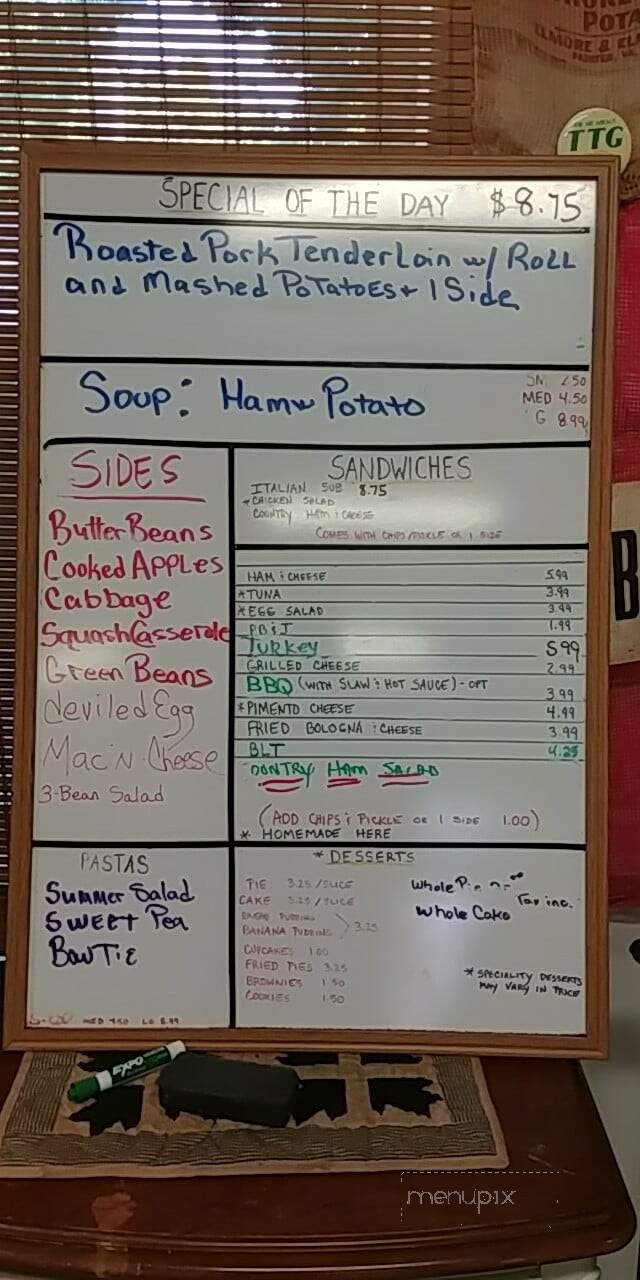 POTA
ELMORE & EL
TTG
SPECIAL OF THE DAY $8.75
Roasted Pork Tenderloin w/ Roll
and Mashed Potatoes + 1 Side
Soup: Ham w Potato
2.50
MED 4.50
G 8.99
SIDES
Butter Beans
Cooked Apples
Cabbage
Squash Casserole
Green Beans
deviled Egg
Mac'N Cheese
3-Bean Salad
SANDWICHES
ITALIAN SUB 8.75
*CHICKEN SALAD
COUNTRY HAM & CHEESE
COMES WITH CHIPS/PICKLE OR 1 SIDE
HAM & CHEESE 5.99
*TUNA 3.99
*EGG SALAD 3.99
PB&J 1.99
Turkey 5.99
GRILLED CHEESE 2.99
BBQ (WITH SLAW & HOT SAUCE) - OPT 3.99
*PIMENTO CHEESE 4.99
FRIED BOLOGNA & CHEESE 3.99
BLT 4.25
OUNTRY HAM SALAD
(ADD CHIPS & PICKLE OR 1 SIDE 1.00)
* HOMEMADE HERE
PASTAS
Summer Salad
SWEET Pea
BowTiE
MED 4.50 LG 8.99
*DESSERTS
PIE 3.25/SLICE
CAKE 3.25/SLICE
BREAD PUDDING
BANANA PUDDING 3.25
CUPCAKES 1.00
FRIED PIES 3.25
BROWNIES 1.50
COOKIES 1.50
Whole Pi
Tax inc.
Whole Cake
* SPECIALITY DESSERTS
MAY VARY IN PRICE
B
EXPO
menupix